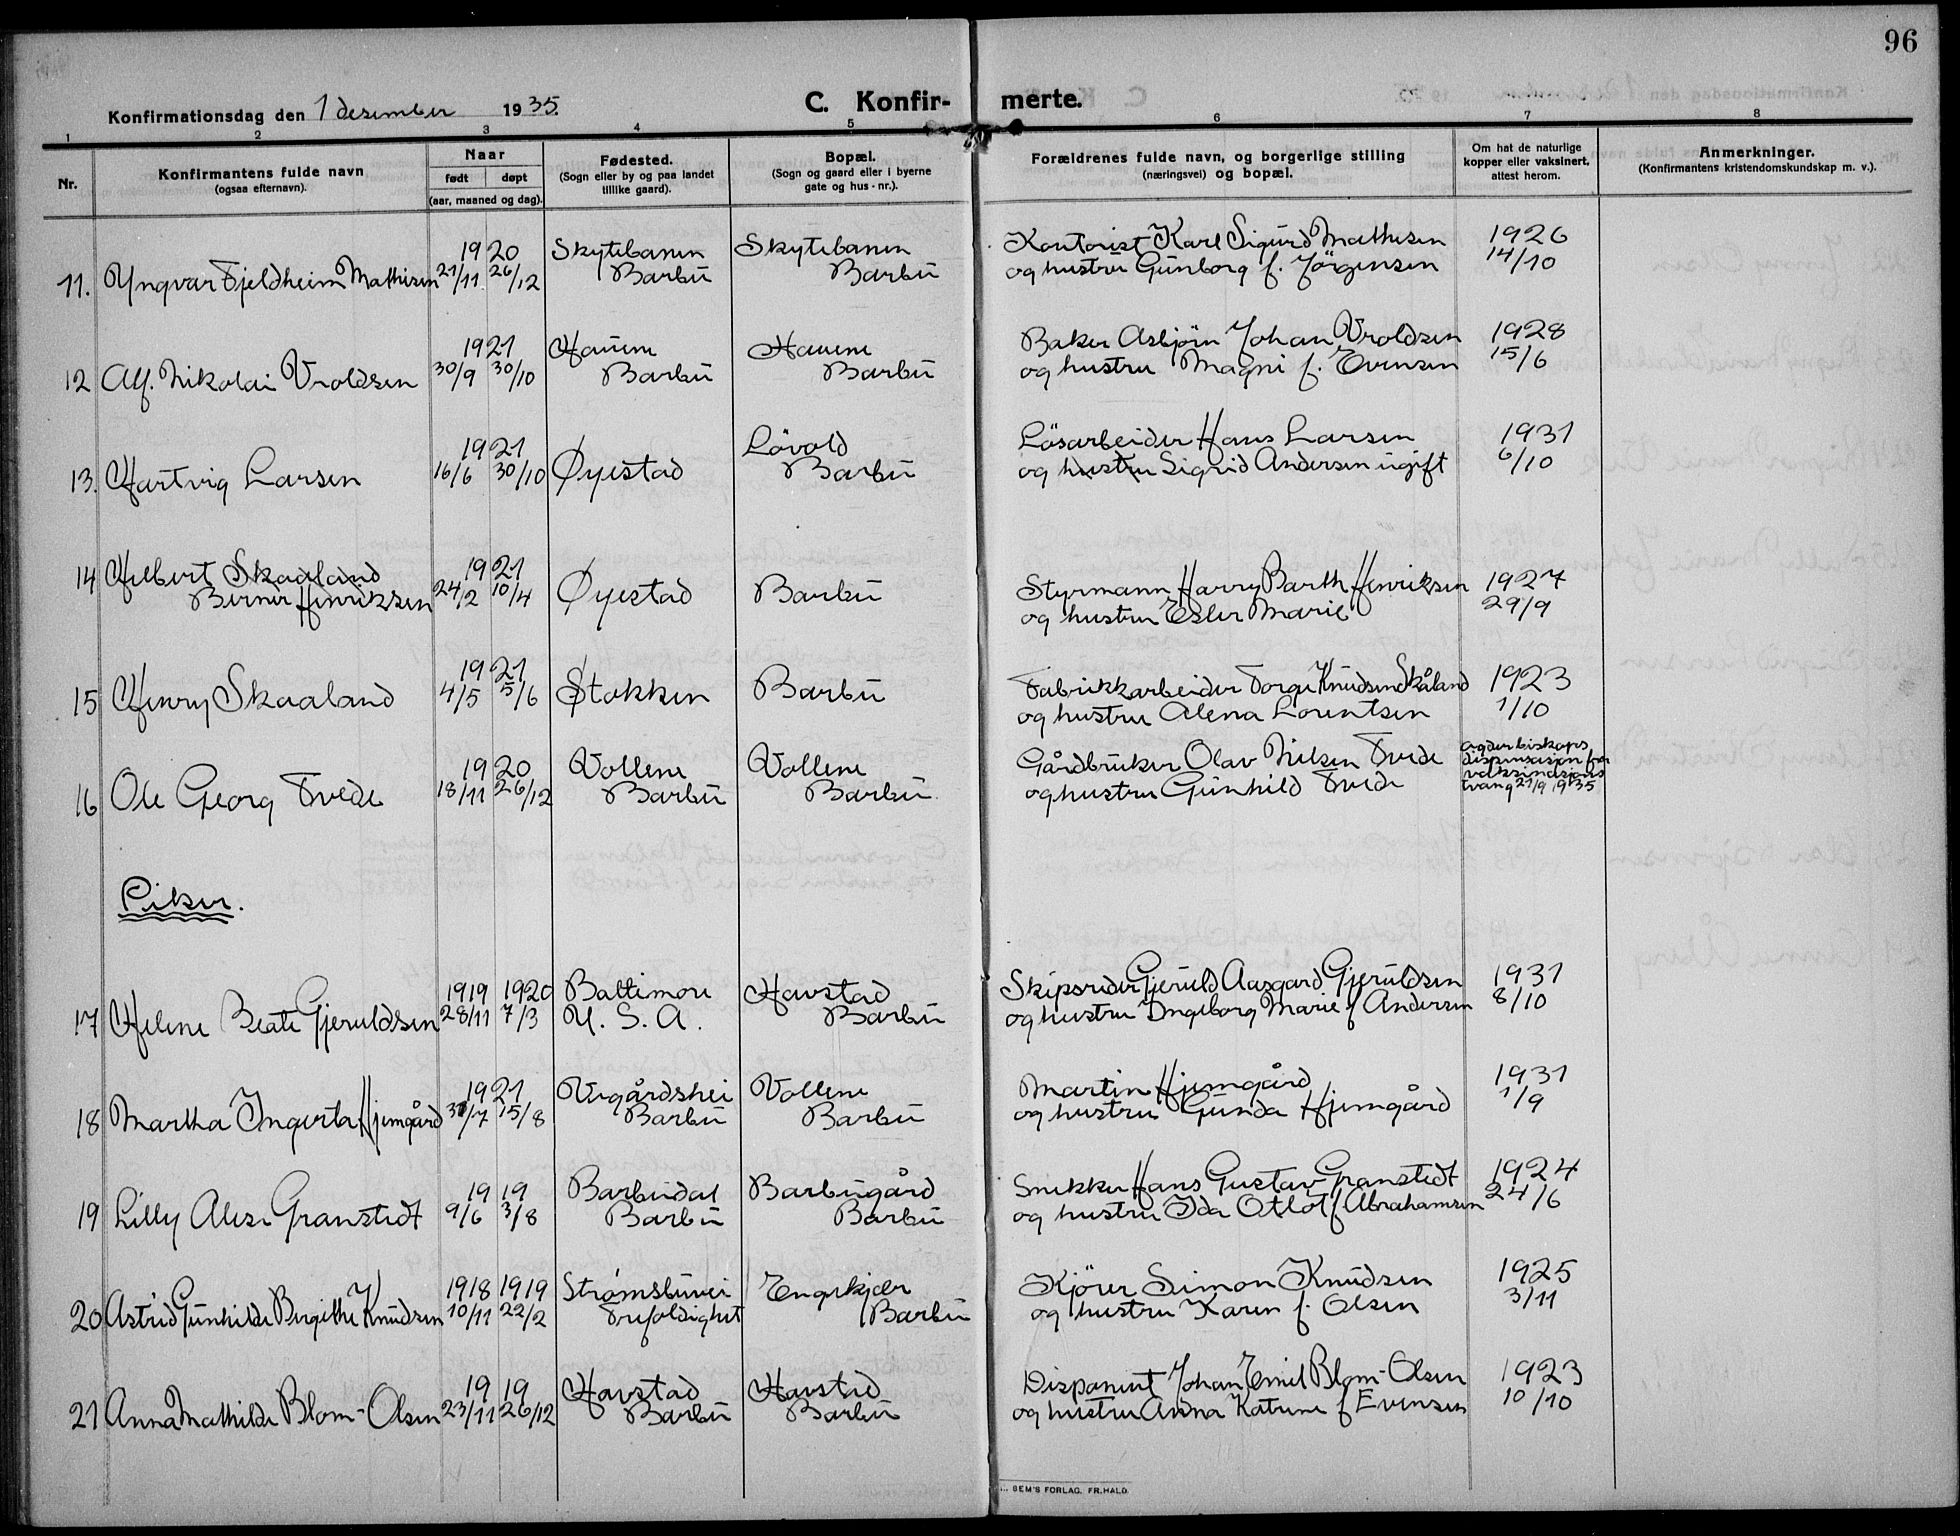 96
Konfirmationsdag den 1 desember 1935.
C. Konfir- merte.
1 2 3 4 5 6 7 8
Nr.
Konfirmantens fulde navn
(ogsaa efternavn).
Naar
født døpt
(aar, maaned og dag).
Fødested.
(Sogn eller by og paa landet
tillike gaard).
Bopæl.
(Sogn og gaard eller i byerne
gate og hus-nr.).
Forældrenes fulde navn, og borgerlige stilling
(næringsvei) og bopæl.
Om hat de naturlige
kopper eller vaksinert,
attest herom.
Anmerkninger.
(Konfirmantens kristendomskundskap m. v.).
1920 Skytebanen Skytebanen Kontorist Karl Sigurd Mathisen 1926
11. Yngvar Fjeldheim Mathisen 21/11 26/12 Barbu Barbu og hustru Gunborg f. Jörgensen 14/10
1921 Hauene Hauene Baker Asbjörn Johan Vroldsen 1928
12 Alf. Nikolai Vroldsen 30/9 30/10 Barbu Barbu og hustru Magni f. Evensen 15/6
1921 Lövold Lösarbeider Hans Larsen 1931
13. Hartvig Larsen 16/6 30/10 Øyestad Barbu og hustru Sigrid Andersen ugift 6/10
14 Helbert Skaaland 1921 Styrmann Harry Barth Henriksen 1927
Berner Henriksen 24/2 10/4 Øyestad Barbu og hustru Ester Marie 29/9
1921 Fabrikkarbeider Torge Knudsen Skåland 1923
15 Henry Skaaland 4/5 5/6 Stokken Barbu og hustru Alena Lorentsen 1/10
1920 Vollene Vollene Gårdbruker Olav Nilsen Tvede agder biskops
dispensasjon for
vaksinasjons
16 Ole Georg Tvede 18/11 26/12 Barbu Barbu og hustru Gunhild Tvede tvang 21/9 1935
Piker.
1919 1920 Baltimore Havstad Skipsreder Gjeruld Aasgard Gjeruldsen 1931
17 Helene Beate Gjeruldsen 28/11 7/3 U. S. A. Barbu og hustru Ingeborg Marie f Andersen 8/10
1921 Vegårdshei Vollene Martin Hjemgård 1931
18 Martha Ingerta Hjemgård 31/7 15/8 Barbu Barbu og hustru Gunda Hjemgård 1/9
1919 Barbudal Barbugård Snikker Hans Gustav Granstedt 1924
19 Lilly Alise Granstedt 9/6 3/8 Barbu Barbu og hustru Ida Otlot f Abrahamsen 24/6
1918 1919 Strømsbuvei Engekjær Kjörer Simon Knudsen 1925
20 Astrid Gunhilde Birgithe Knudsen 10/11 22/2 Trefoldighet Barbu og hustru Karen f. Olsen 3/11
1919 Havstad Havstad Disponent Johan Emil Blom-Olsen 1923
21 Anna Mathilde Blom-Olsen 23/11 26/12 Barbu Barbu og hustru Anna Katrine f Evensen 10/10
SEM'S FORLAG. FR.HALD.